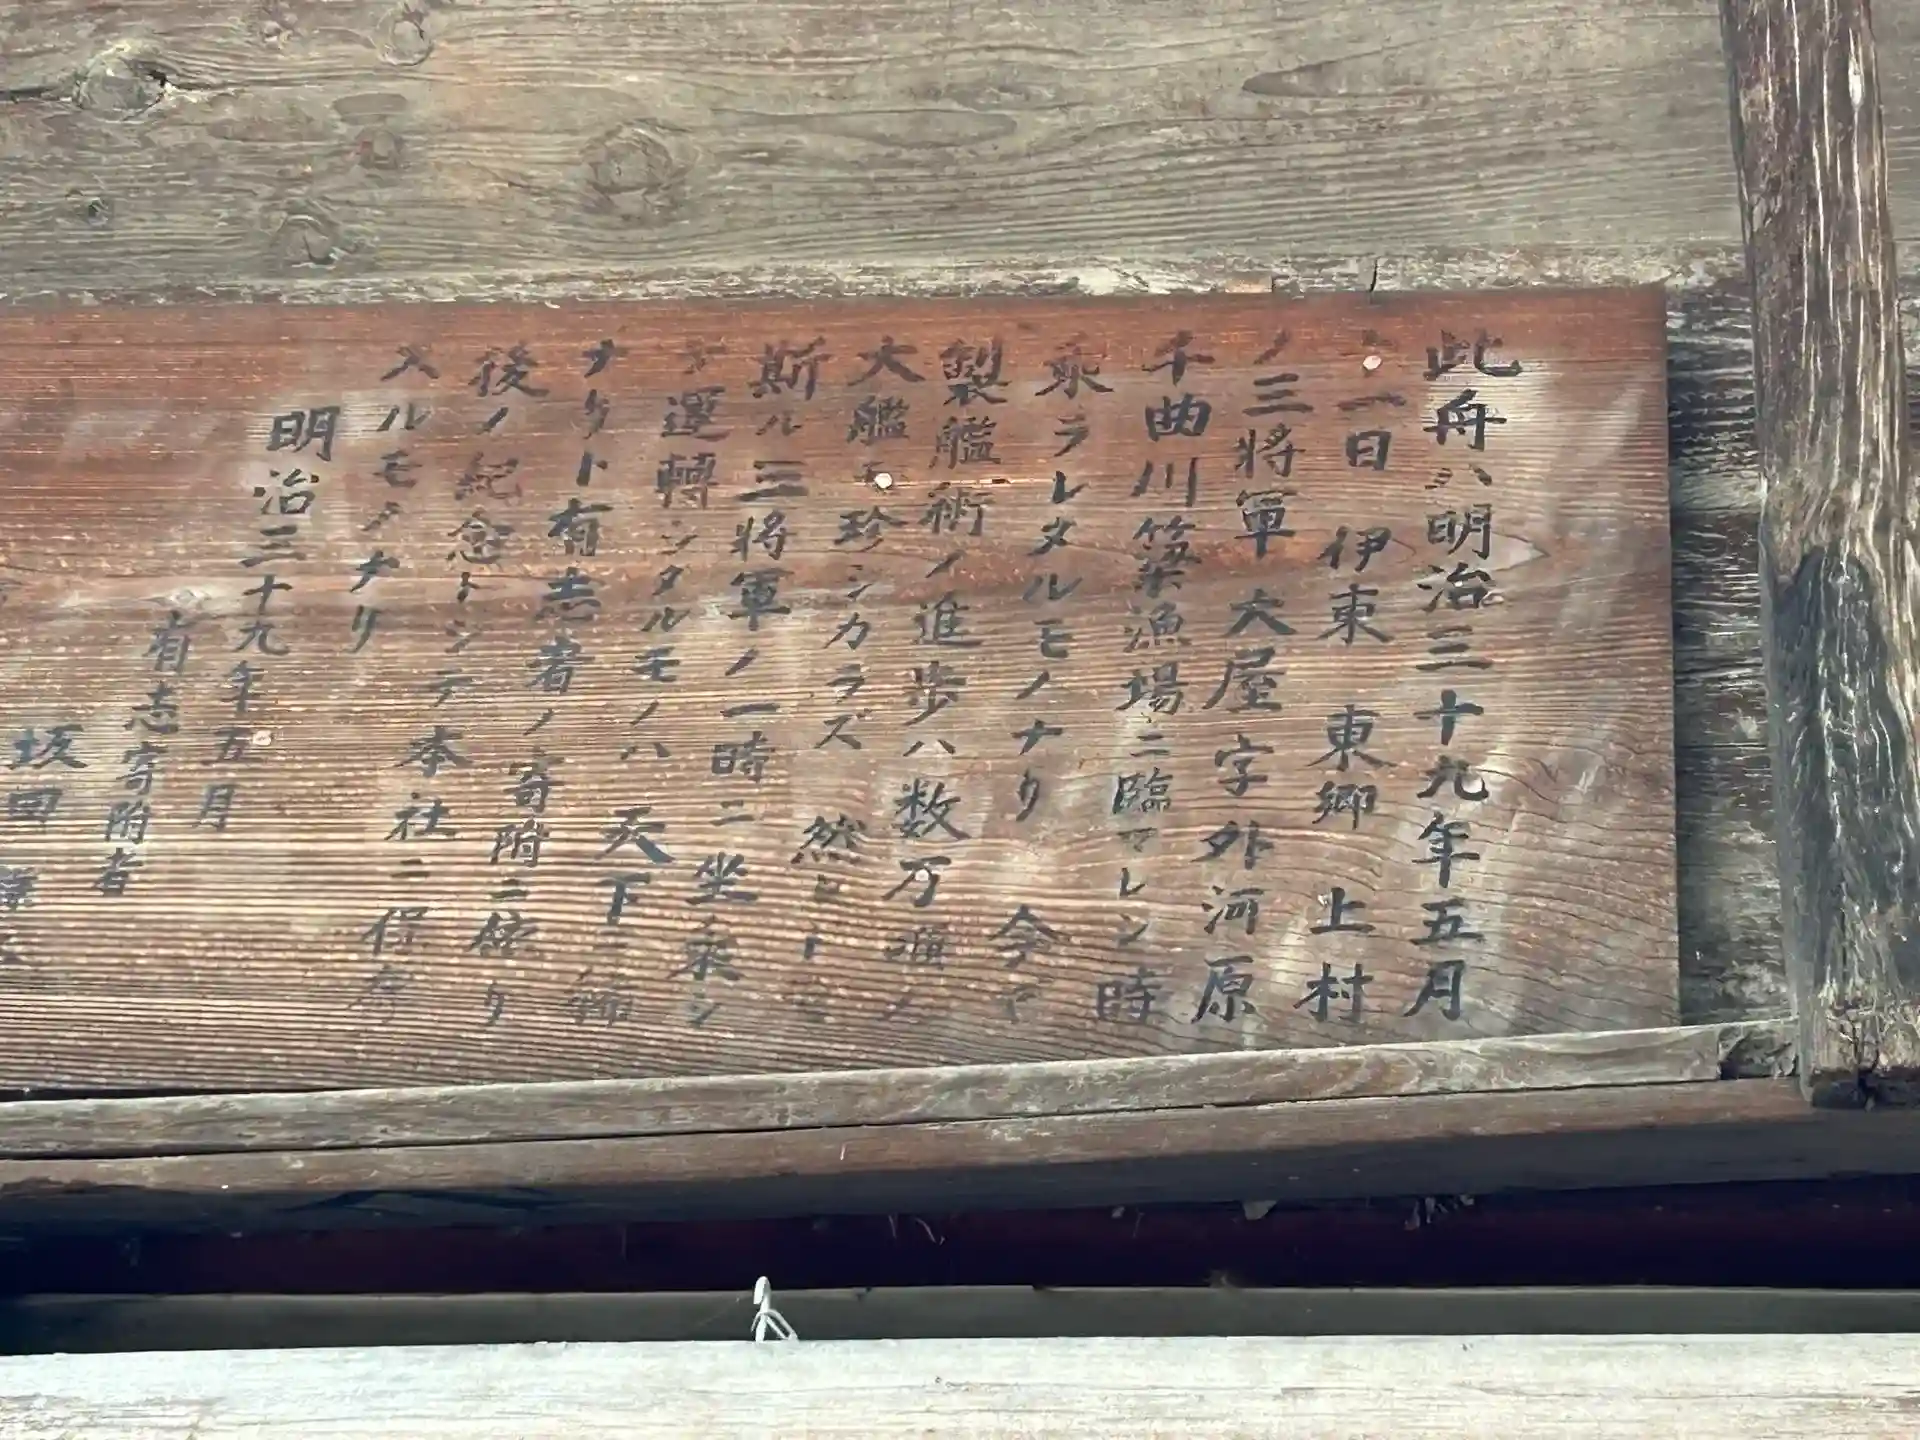 此舟ハ明治三十九年五月
十一日 伊東 東郷 上村
ノ三将軍大屋字外河原
千曲川簗漁場ニ臨マレシ時
乗ラレタルモノナリ 今ヤ
製艦術ノ進歩ハ数万噸ノ
大艦モ珍シカラズ 然レトモ
斯ル三将軍ノ一時ニ坐乗シ
テ運轉シタルモノハ天下ニ稀
ナリト有志者ノ寄附ニ依リ
後ノ紀念トシテ本社ニ保存
スルモノナリ
明治三十九年五月
有志寄附者
坂田